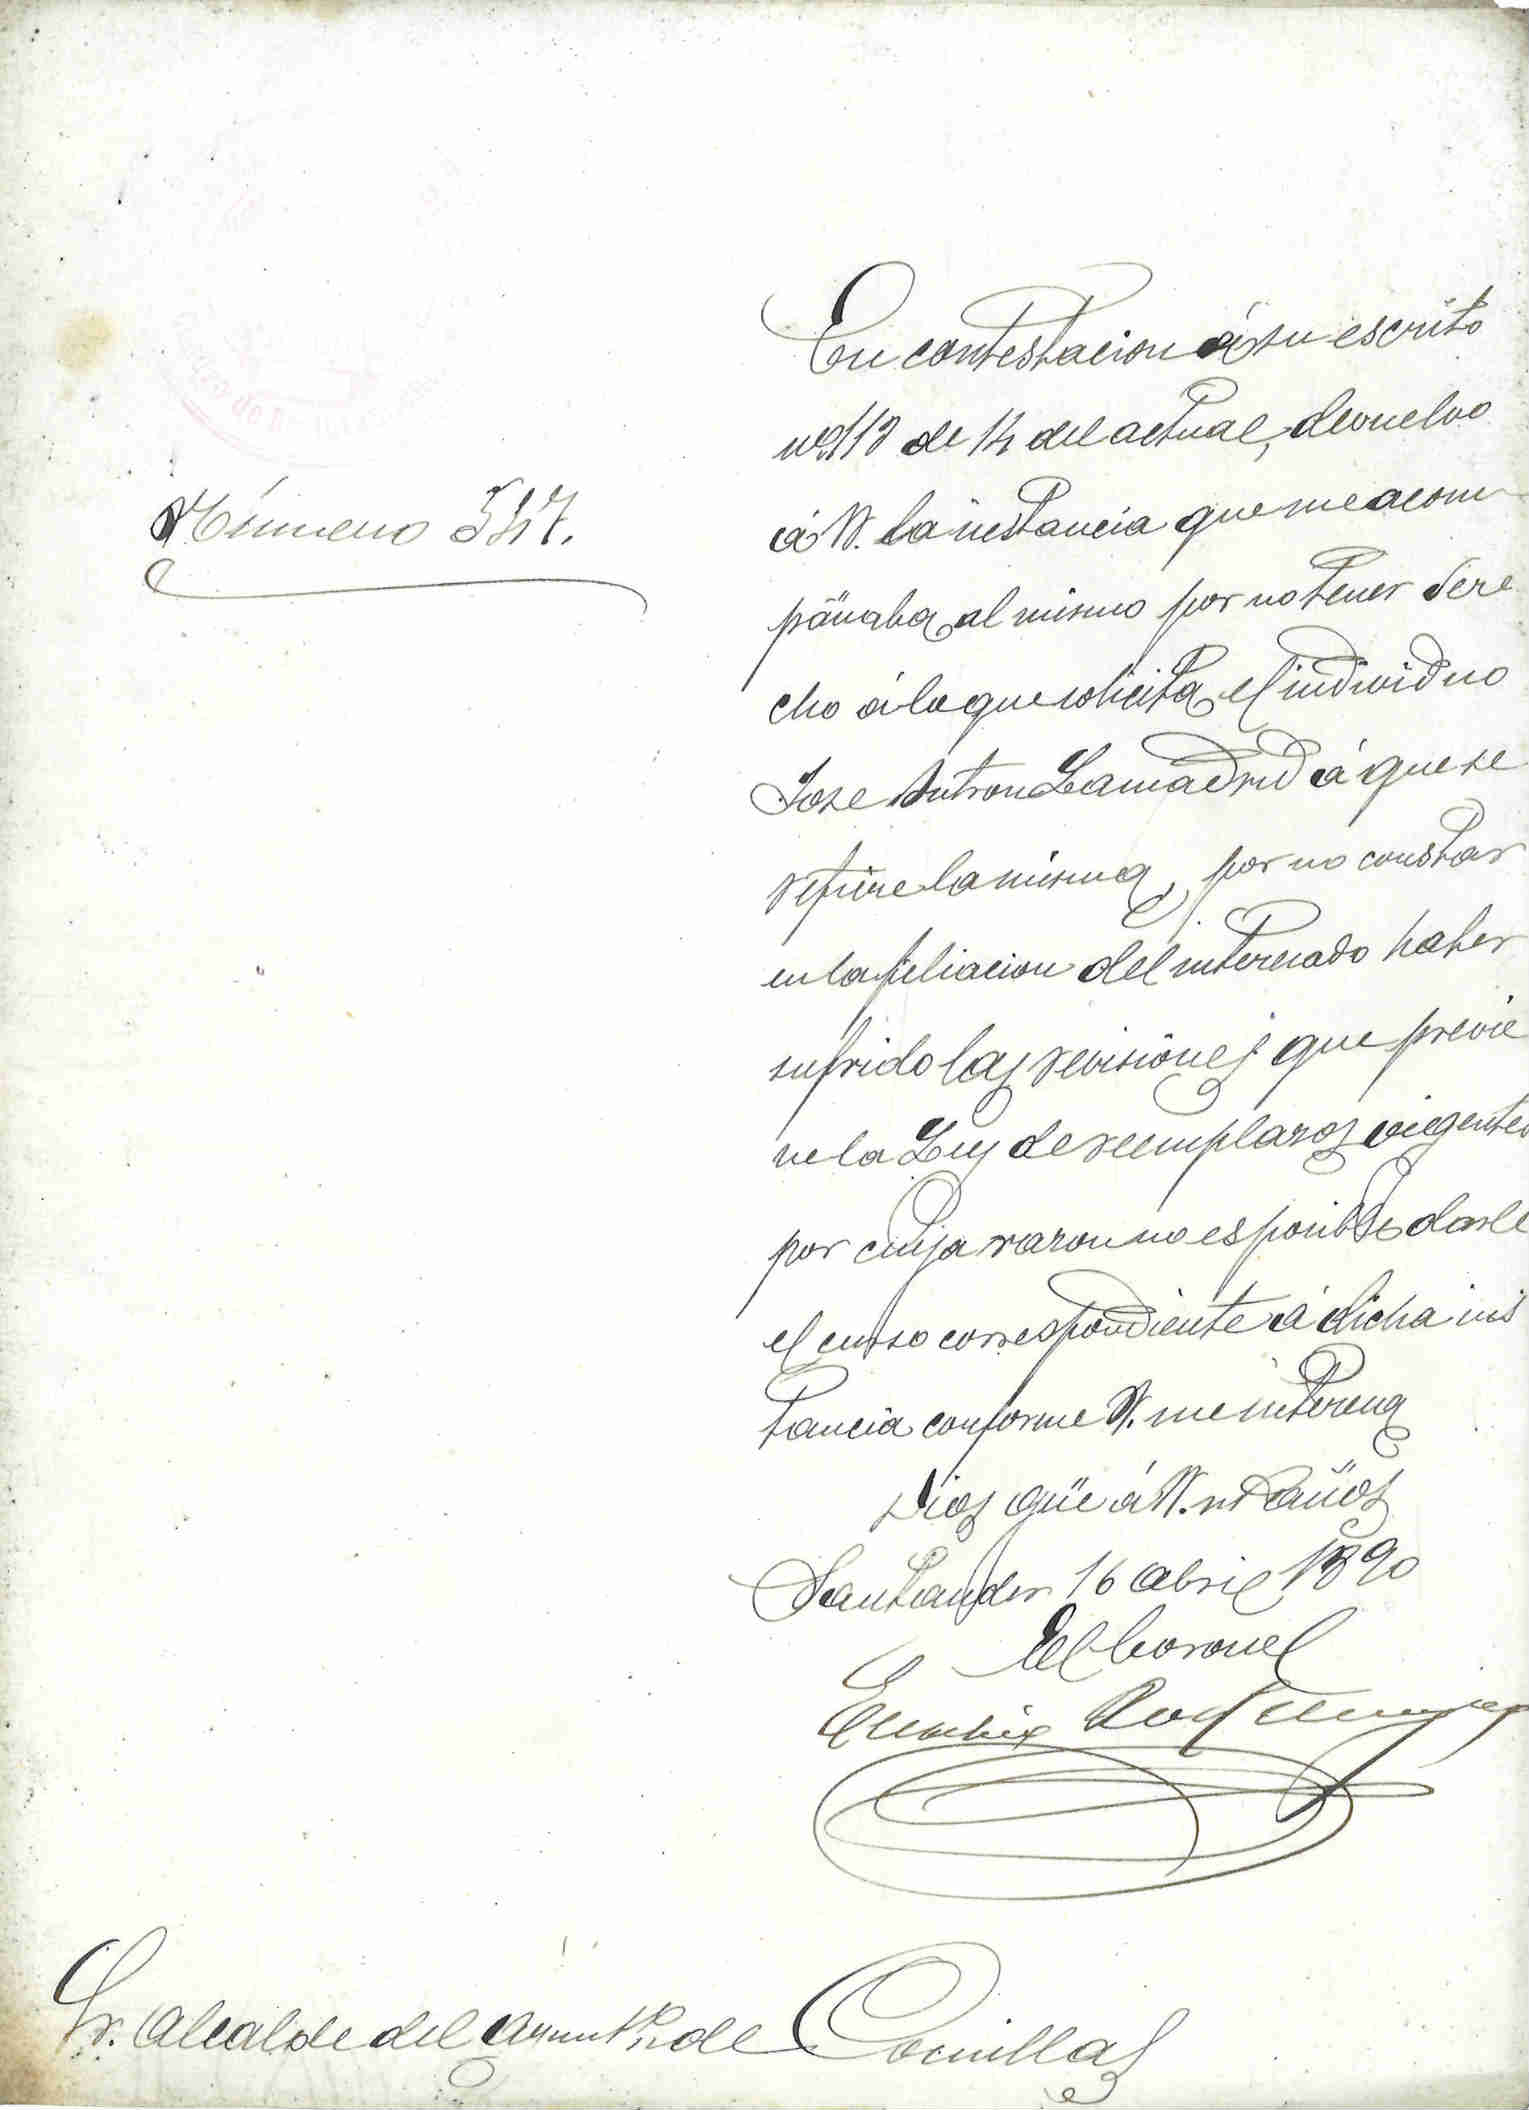 Número 547.
En contestacion á su escrito
nº 112 de 14 del actual, devuelvo
á V. la instancia que me acom-
pañaba al mismo por no tener dere
cho á lo que solicita el individuo
Jose Lamadrid á que se
refiere la misma, por no constar
en la filiacion del interesado haber
sufrido las revisiones que previe
ne la Ley de reemplazos vigente
por cuya razon no es posible darle
el curso correspondiente á dicha ins
tancia conforme V. me interesa
Dios gue á V. ms años
Santander 16 abril 1890
El Coronel
Sr. Alcalde del Ayuntº de Comillas